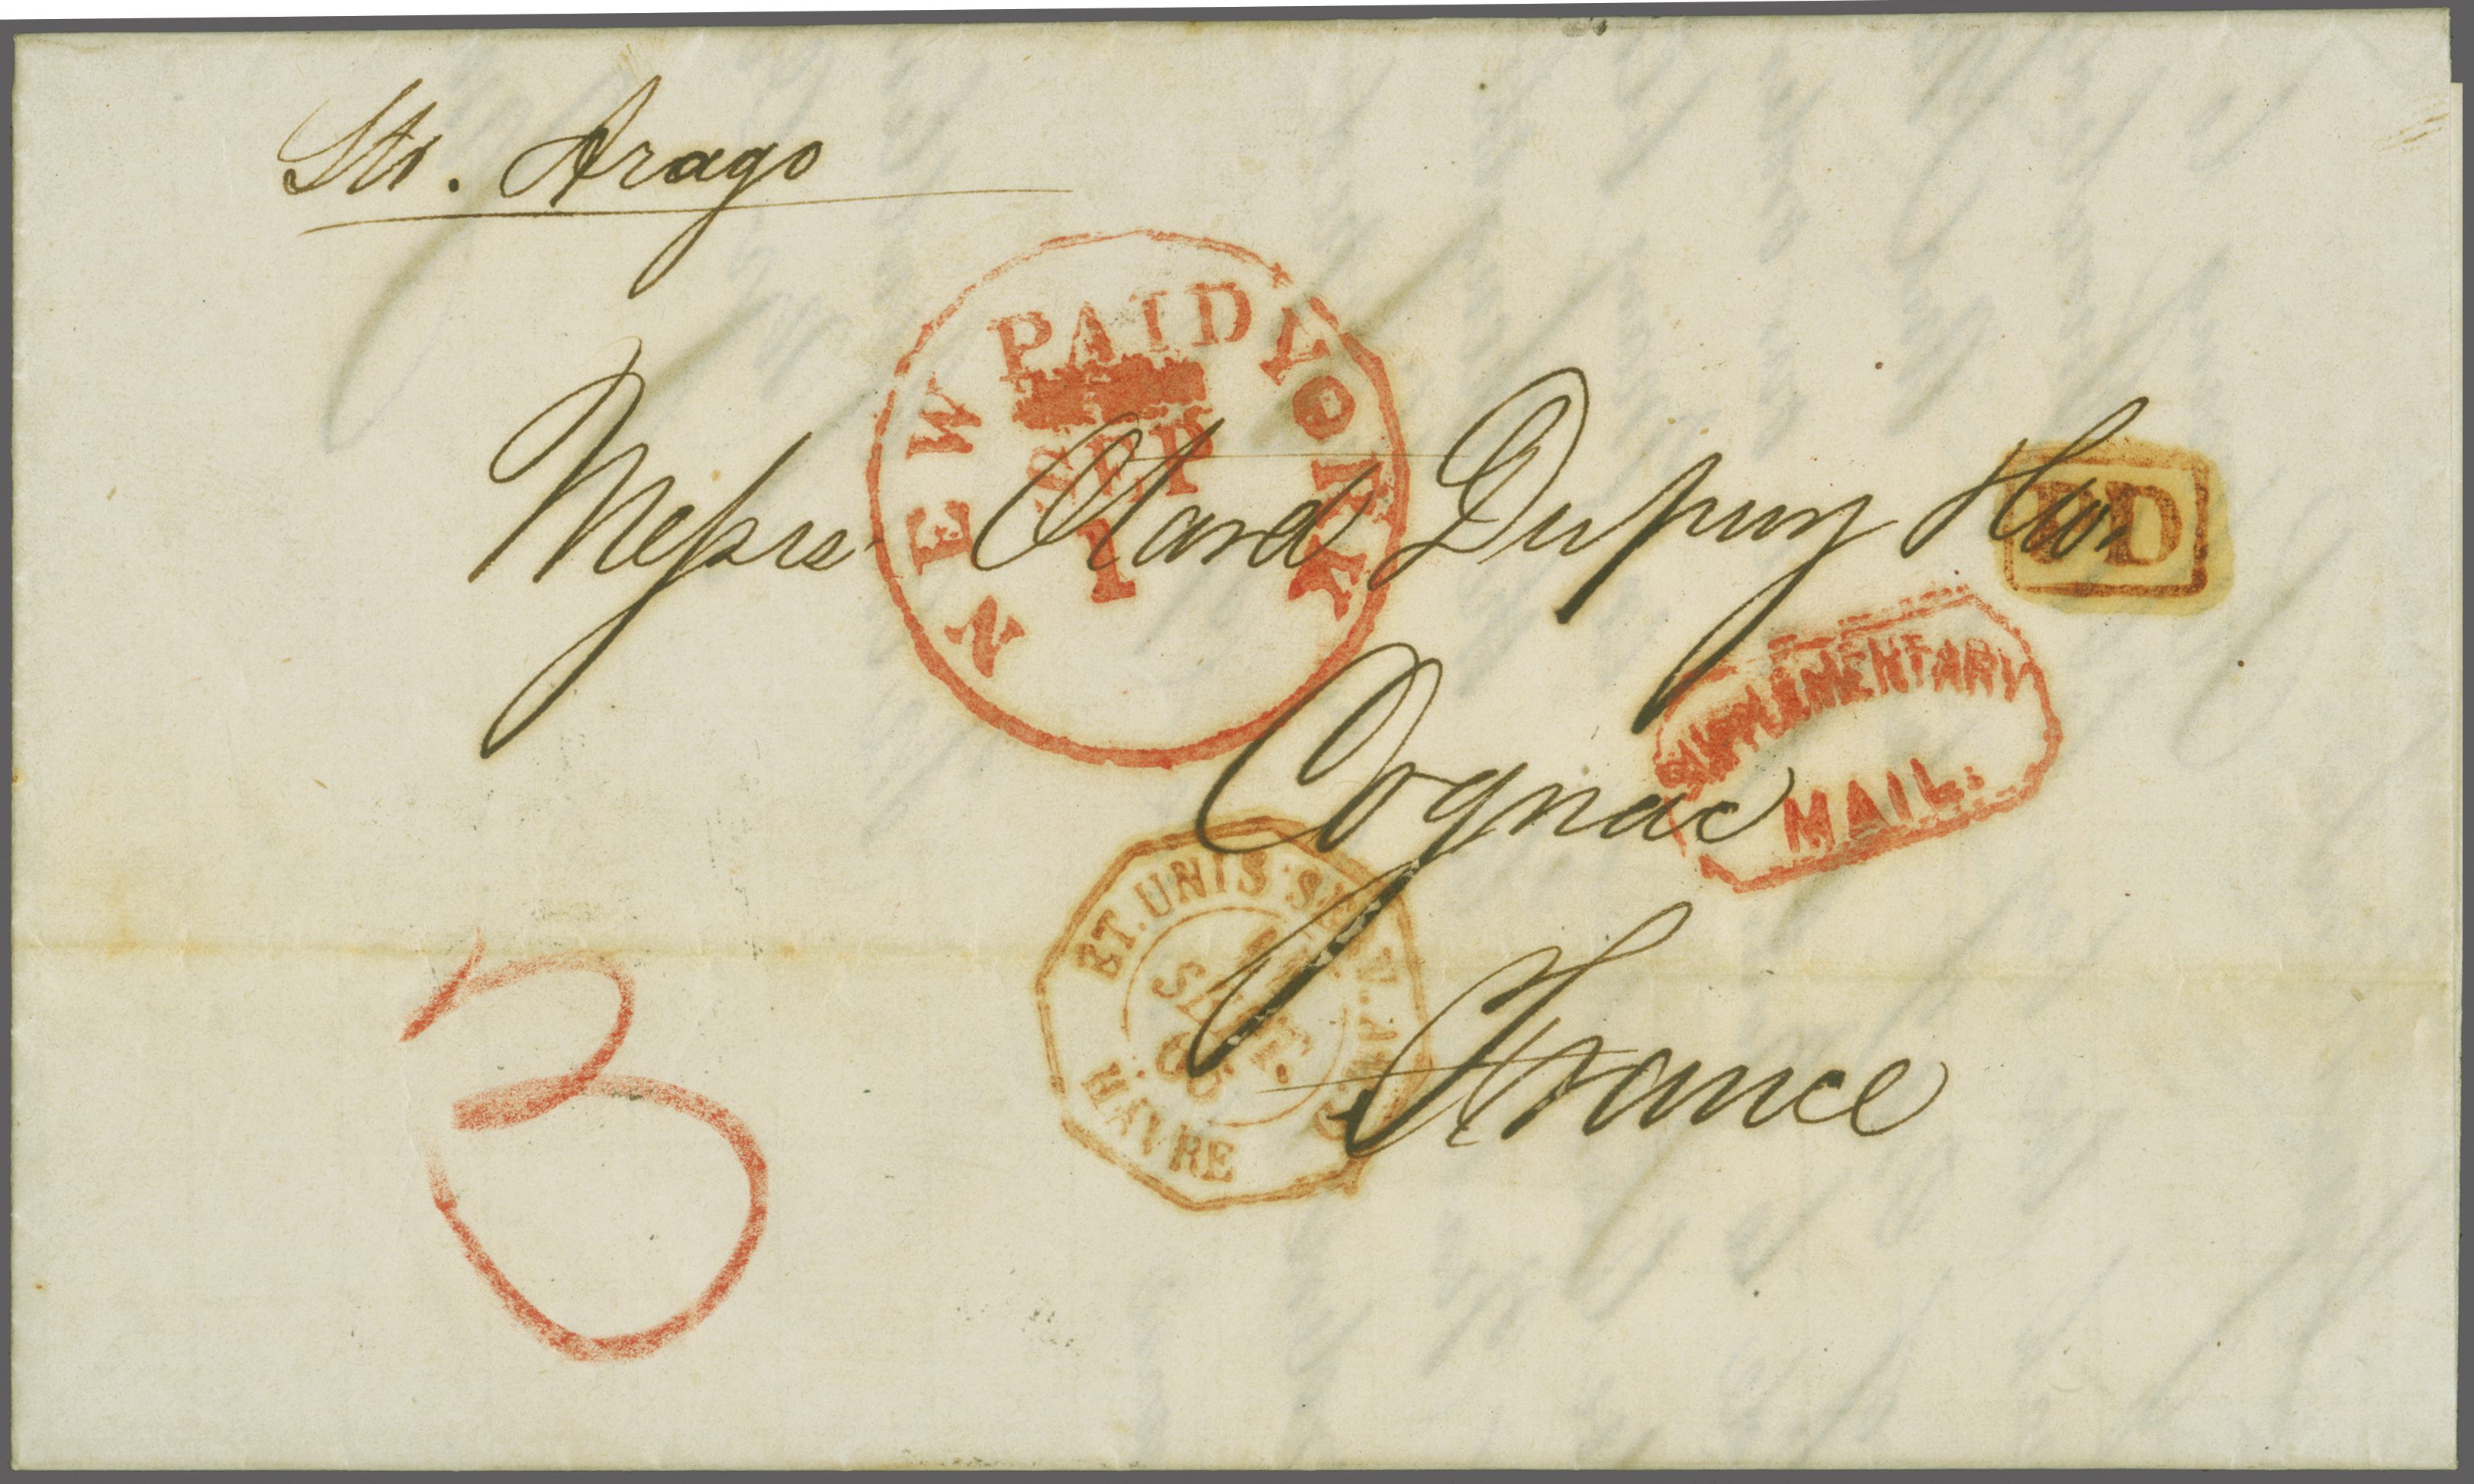 Str. Arago
NEW YORK
PAID
SEP
1
Messrs Otard Dupuy &Co.
PD
SUPPLEMENTARY
MAIL.
Cognac
ET. UNIS SERV. AM.
SEPT.
HAVRE
France
3